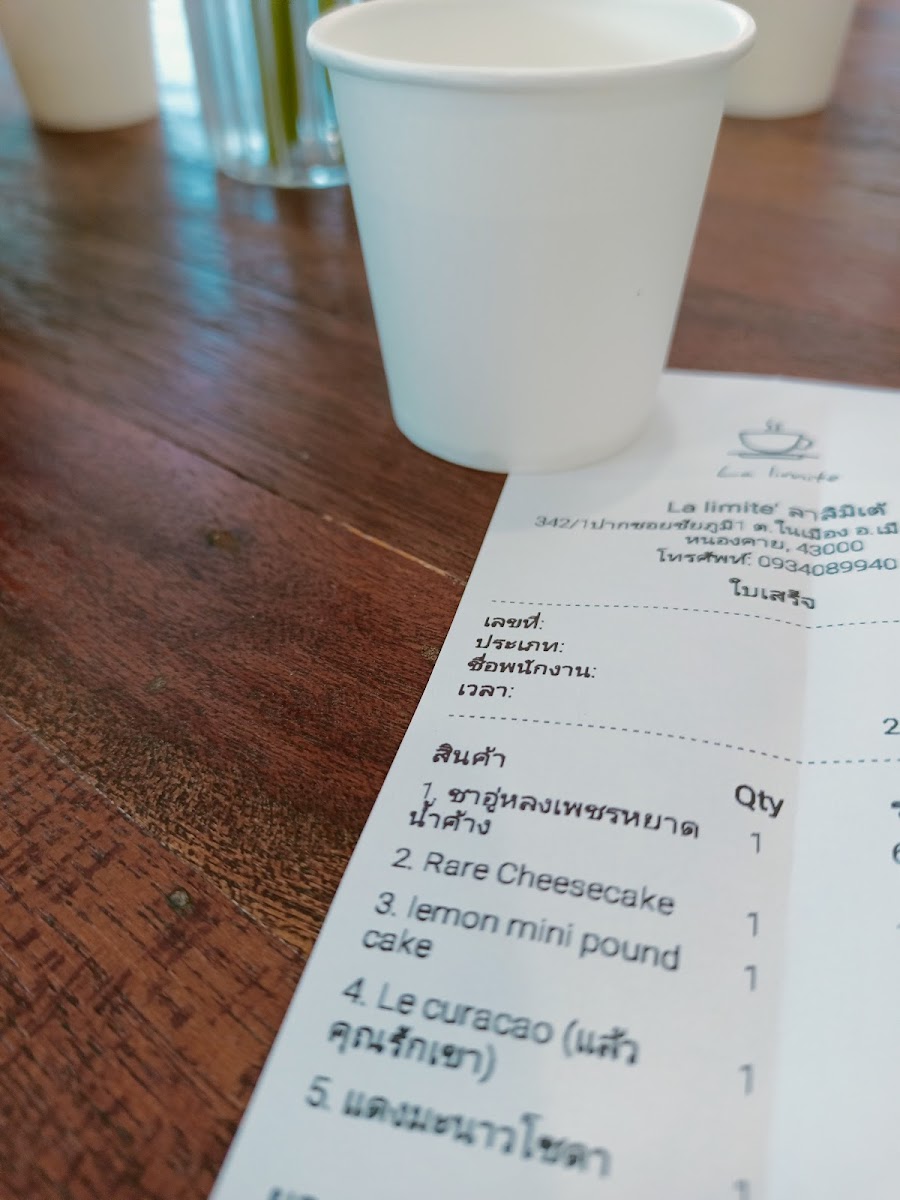 La limite
La limite' ลาลิมิเต้
342/1ปากซอยชัยภูมิ1 ต.ในเมือง อ.เมื
หนองคาย, 43000
โทรศัพท์: 0934089940
ใบเสร็จ
เลขที่:
ประเภท:
ชื่อพนักงาน:
เวลา:
2
สินค้า Qty
1. ชาอู่หลงเพชรหยาด
น้ำค้าง 1
2. Rare Cheesecake 1
3. lemon mini pound
cake 1
4. Le curacao (แล้ว
คุณรักเขา) 1
5. แดงมะนาวโซดา 1